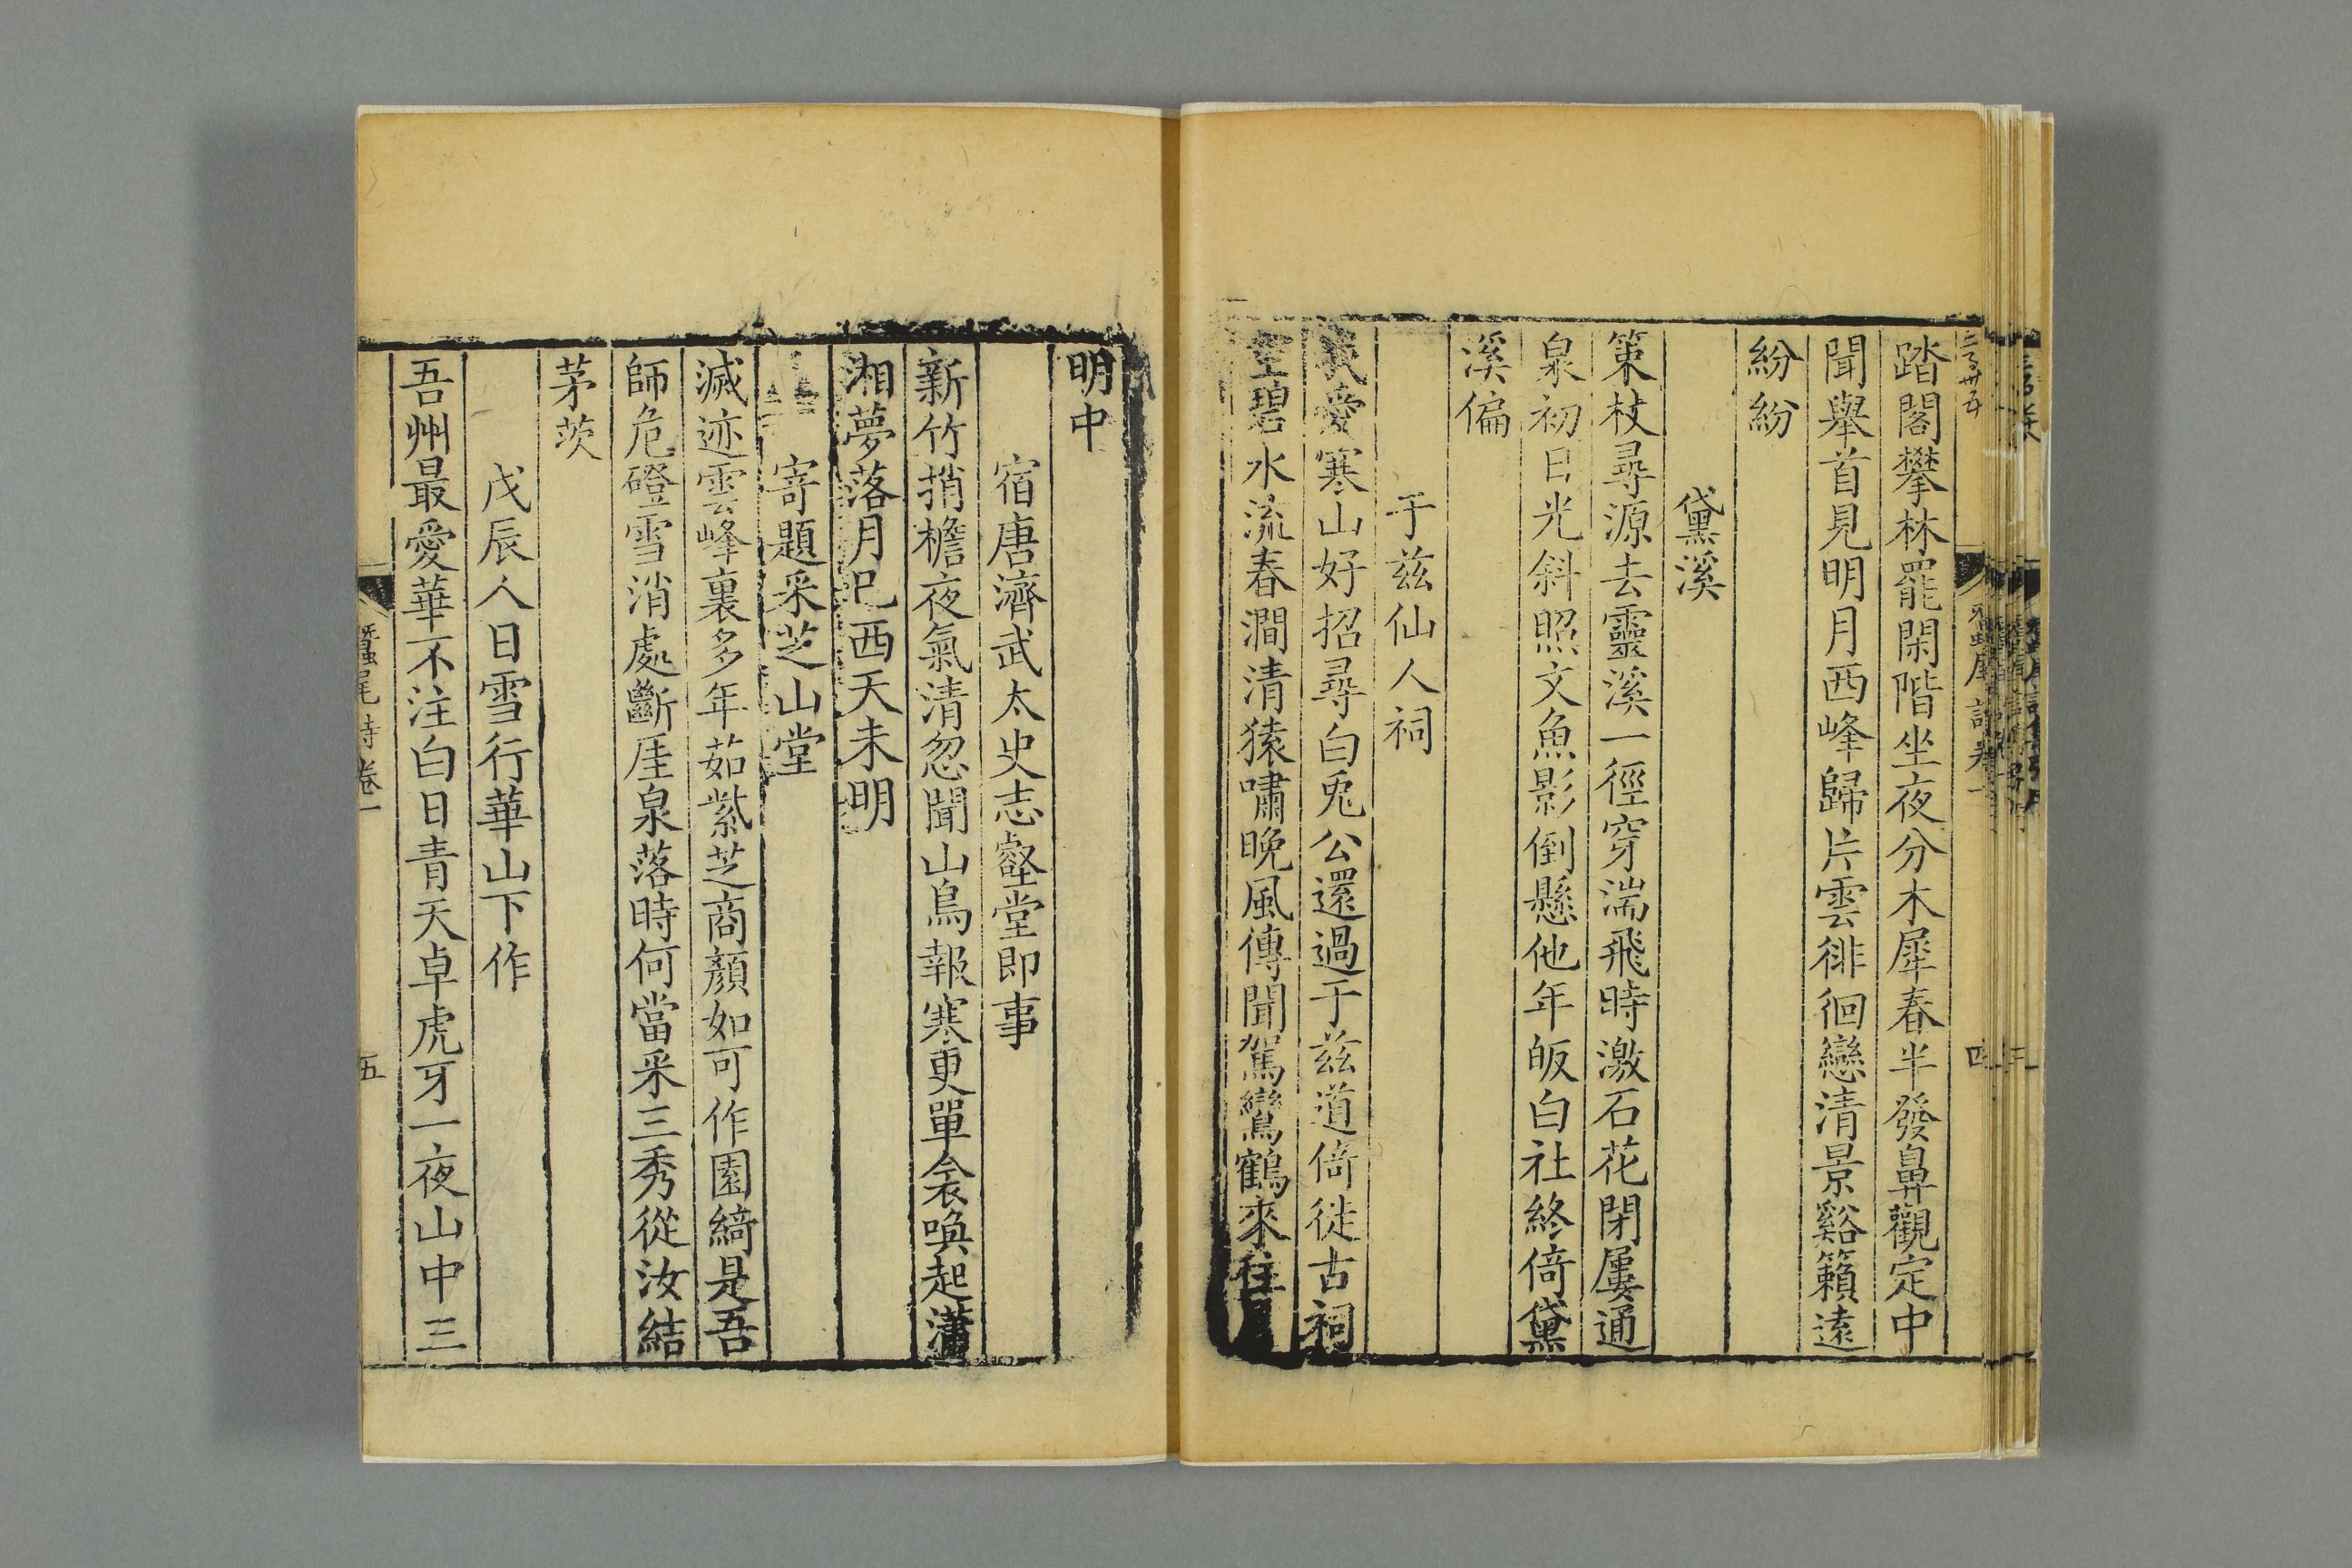 踏閣攀林罷閑階坐夜分木犀春半發鼻觀定中
聞舉首見明月西峰歸片雲徘徊戀清景谿籟遠
紛紛
黛溪
策杖尋源去靈溪一徑穿湍飛時激石花閉屢通
泉初日光斜照文魚影倒懸他年皈白社終倚黛
溪偏
于兹仙人祠
我愛寒山好招尋白兎公還過于兹道倚徙古祠
空碧水流春澗清猿嘯晚風傳聞駕鸞鶴來往月
明中
宿唐濟武太史志壑堂即事
新竹捎檐夜氣清忽聞山鳥報寒更單衾喚起瀟
湘夢落月已西天未明
寄題采芝山堂
滅迹雲峰裏多年茹紫芝商顏如可作園綺是吾
師危磴雪消處斷厓泉落時何當采三秀從汝結
茅茨
戊辰人日雪行華山下作
吾州最愛華不注白日青天卓虎牙一夜山中三
蠶尾詩卷一
五